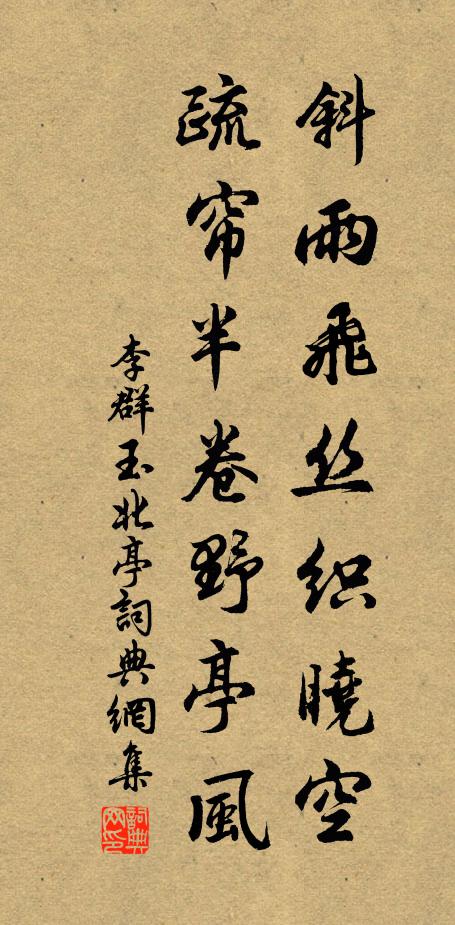 斜雨飛丝织曉空
疏帘半卷野亭風
李群玉北亭詞典網集
詞典
网印